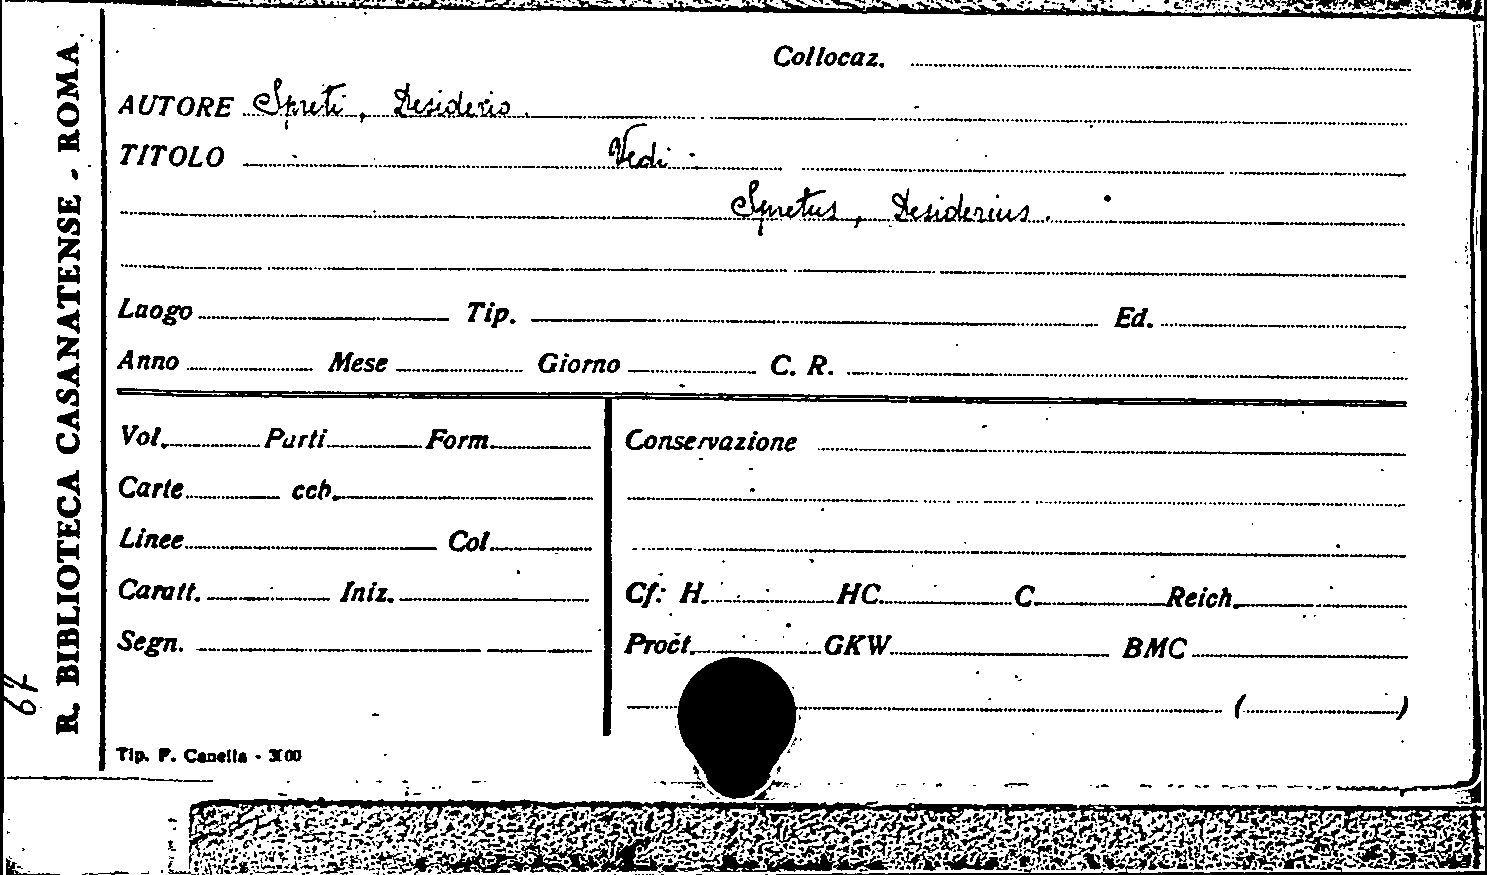 R. BIBLIOTECA CASANATENSE - ROMA
67
Collocaz.
AUTORE Spreti, Desiderio.
TITOLO Vedi
Spretus, Desiderius.
Luogo Tip. Ed.
Anno Mese Giorno C. R.
Vol. Parti Form.
Carte ccb.
Linee Col.
Caratt. Iniz.
Segn.
Conservazione
Cf: H. HC. C. Reich.
Proct. GKW. BMC
( )
Tip. F. Canella -